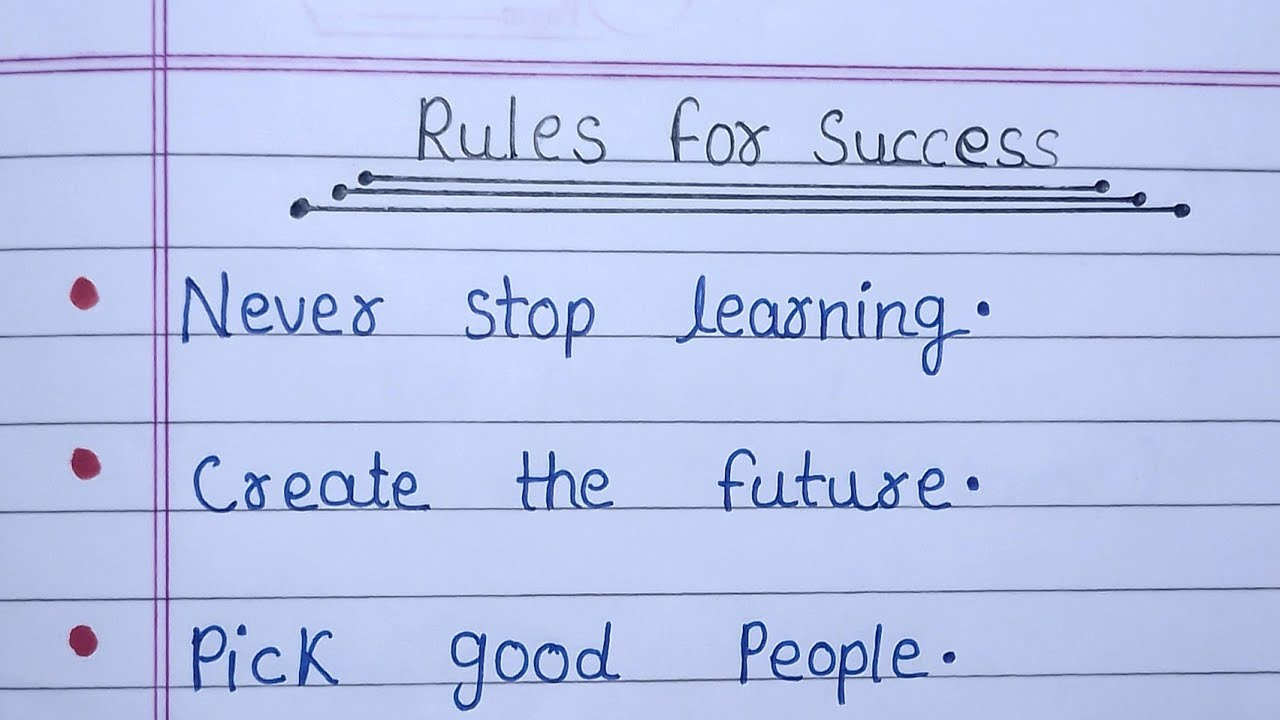 Rules for Success
Never stop learning.
Create the future.
Pick good People.